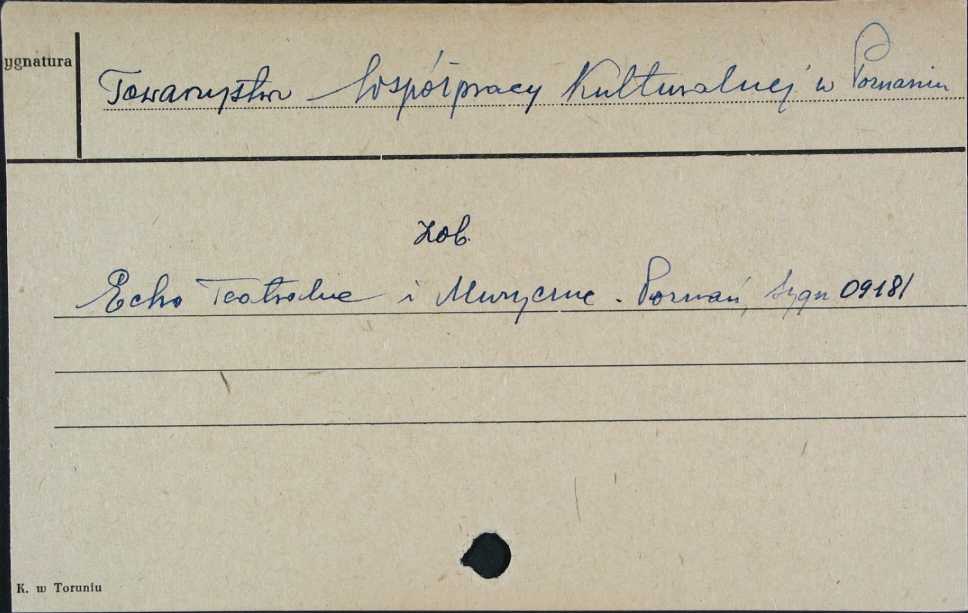 ygnatura
Towarzystwo Współpracy Kulturalnej w Poznaniu
Zob.
Echo Teatralne i Muzyczne. Poznań, sygn 09181
K. w Toruniu